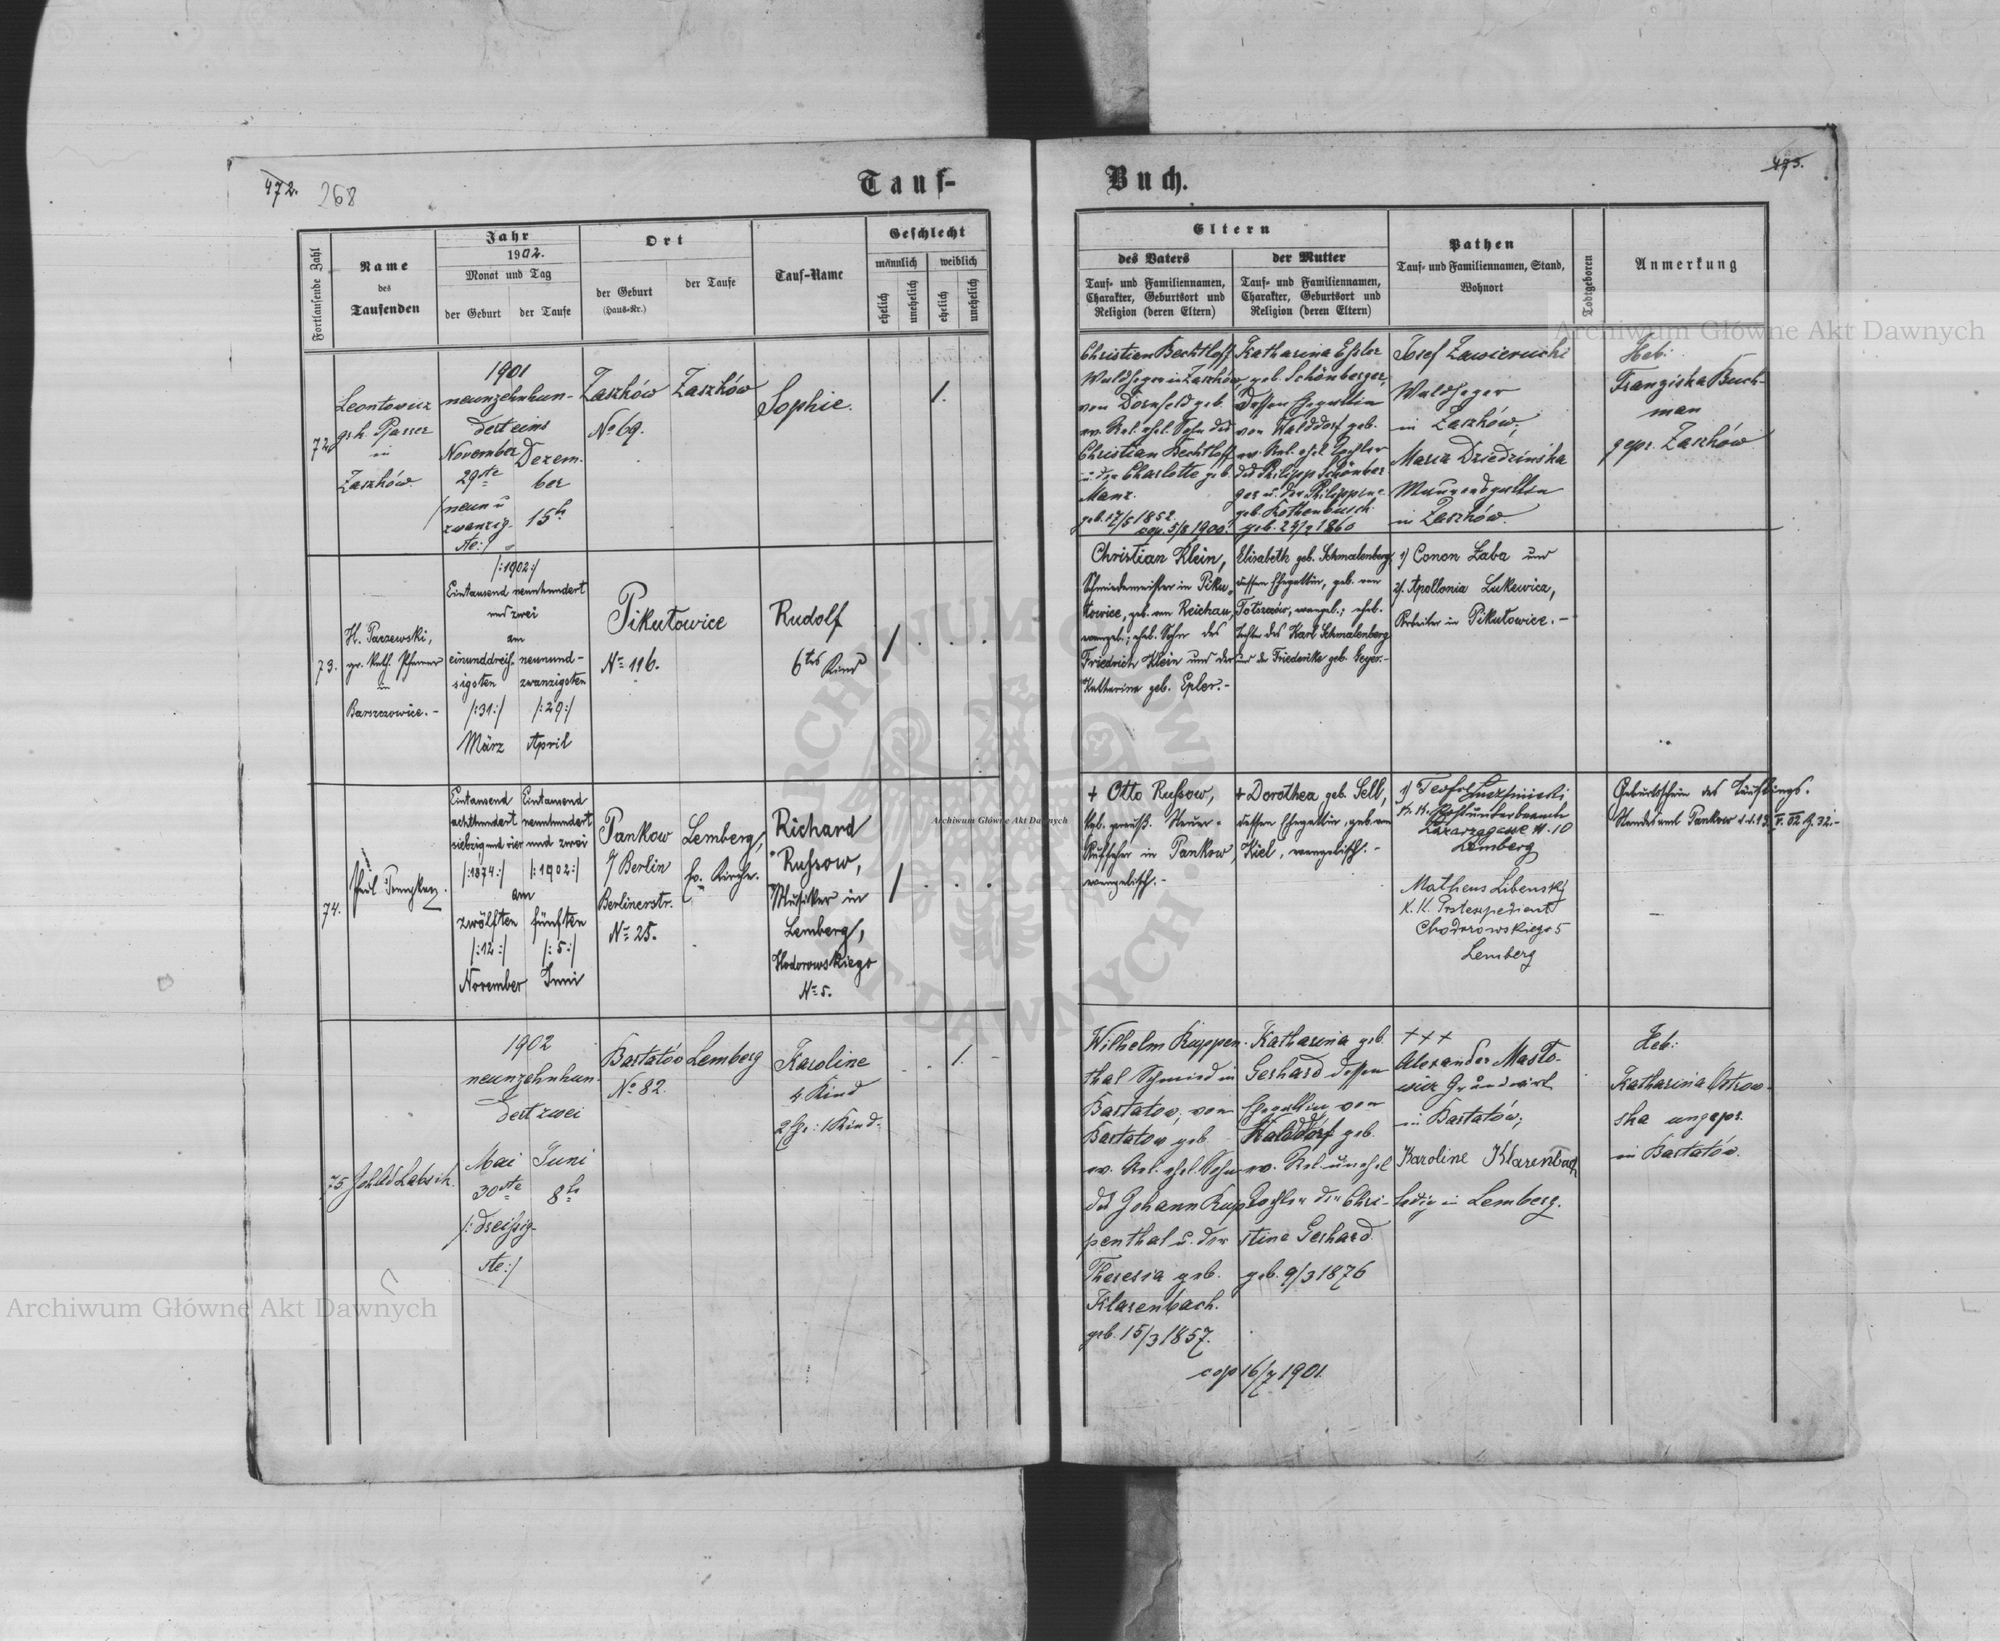 472.
268
Tauf-
Buch.
473.
Fortlaufende Zahl
Name
des
Taufenden
Jahr
1902.
Monat und Tag
der Geburt
der Taufe
Ort
der Geburt
(Haus-Nr.)
der Taufe
Tauf-Name
Geschlecht
männlich
weiblich
ehelich
unehelich
ehelich
unehelich
Eltern
des Vaters
Tauf- und Familiennamen,
Charakter, Geburtsort und
Religion (deren Eltern)
der Mutter
Tauf- und Familiennamen,
Charakter, Geburtsort und
Religion (deren Eltern)
Pathen
Tauf- und Familiennamen, Stand,
Wohnort
Todtgeboren
Anmerkung
72.
Leontowicz
in
Zaszków.
1901
neunzehnhun-
dert eins
November
29te
/:neun u
zwanzig
ste:/
Dezem-
ber
15t
Zaszków
No 69.
Zaszków
Sophie.
1.
Christian Bechtloff
Waldheger in Zaszków
von Dornfeld geb.
ev. Rel. ehel. Sohn des
Christian Bechtloff
u. der Charlotte geb.
Manz.
geb. 17/5 1852.
cop. 5/8 1900.
Katharina Eßler
geb. Schönberger,
dessen Ehegattin
von Walddorf geb.
ev. Rel. ehel. Tochter
des Philipp Schönber
ger u. der Philippine
geb. Kothenbusch
geb. 24/2 1860
Josef Zawieruchi
Waldheger
in Zaszków;
Maria Dziedzinska
in Zaszków.
Heb:
Franziska Buch-
man
gepr. Zaszków
73.
H. Parzewski,
gr. kath. Pfarrer
in
Barszczowice.-
/:1902:/
Eintausend neunhundert
und zwei
am
einunddreis-
sigsten
/:31:/
März
neunund-
zwanzigsten
/:29:/
April
Pikutowice
No 116.
Rudolf
6tes Kind
/
Christian Klein,
Schmiedemeister in Piku-
towice, geb. von Reichau,
evangel.; ehel. Sohn des
Friedrich Klein und der
Katharina geb. Epler.-
Elisabeth geb. Schmalenberg,
dessen Ehegattin, geb. von
Totszczów, evangel.; ehel.
Tochter des Karl Schmalenberg
und der Friederike geb. Geyer.-
1) Conon Łaba und
2) Apollonia Lukewicz,
Arbeiter in Pikutowice.-
74.
Eintausend
achthundert
siebzig und vier
/:1874:/
Eintausend
neunhundert
und zwei
/:1902:/
am
zwölften
/:12:/
November
fünften
/:5:/
Juni
Pankow
b/ Berlin
Berlinerstr.
No 25.
Lemberg,
ev. Kirche.
Richard
Russow,
Musiker in
Lemberg,
Hodorowskiego
No 5.
/
+ Otto Russow,
kgl. preuß. Steuer-
Aufseher in Pankow,
evangelisch.-
+ Dorothea geb. Sell,
dessen Ehegattin, geb. von
Kiel, evangelisch.-
K. K. Postunterbeamte
Łazarzagasse N. 10
Lemberg
Matheus Libenski
K. K. Postexpedient
Chodorowskiego 5
Lemberg
Geburtsschein des Täuflings.
Standesamt Pankow
75.
1902
neunzehnhun-
dert zwei
Mai
30ste
/:dreißig-
ste:/
Juni
8te
Bartatów
No 82.
Lemberg
Karoline
4 Kind
2 Ehe: 1 Kind.
1.
Wilhelm Kuppen-
thal Schmied in
Bartatów, von
Bartatow geb.
ev. Rel. ehel. Sohn
des Johann Kup
penthal u. der
Theresia geb.
Klarenbach.
geb. 15/3 1857.
cop 16/7 1901
Katharina geb.
Gerhard dessen
Ehegattin von
Walddorf geb.
ev. Rel. unehel
Tochter der Chri-
stine Gerhard
geb. 9/3 1876
+++
Alexander Masto-
wicz Grundwirt
in Bartatów;
Karoline Klarenbach
ledig in Lemberg.
Heb:
Katharina Ostrow-
ska ungepr.
in Bartatów.
Archiwum Główne Akt Dawnych
Archiwum Główne Akt Dawnych
Archiwum Główne Akt Dawnych